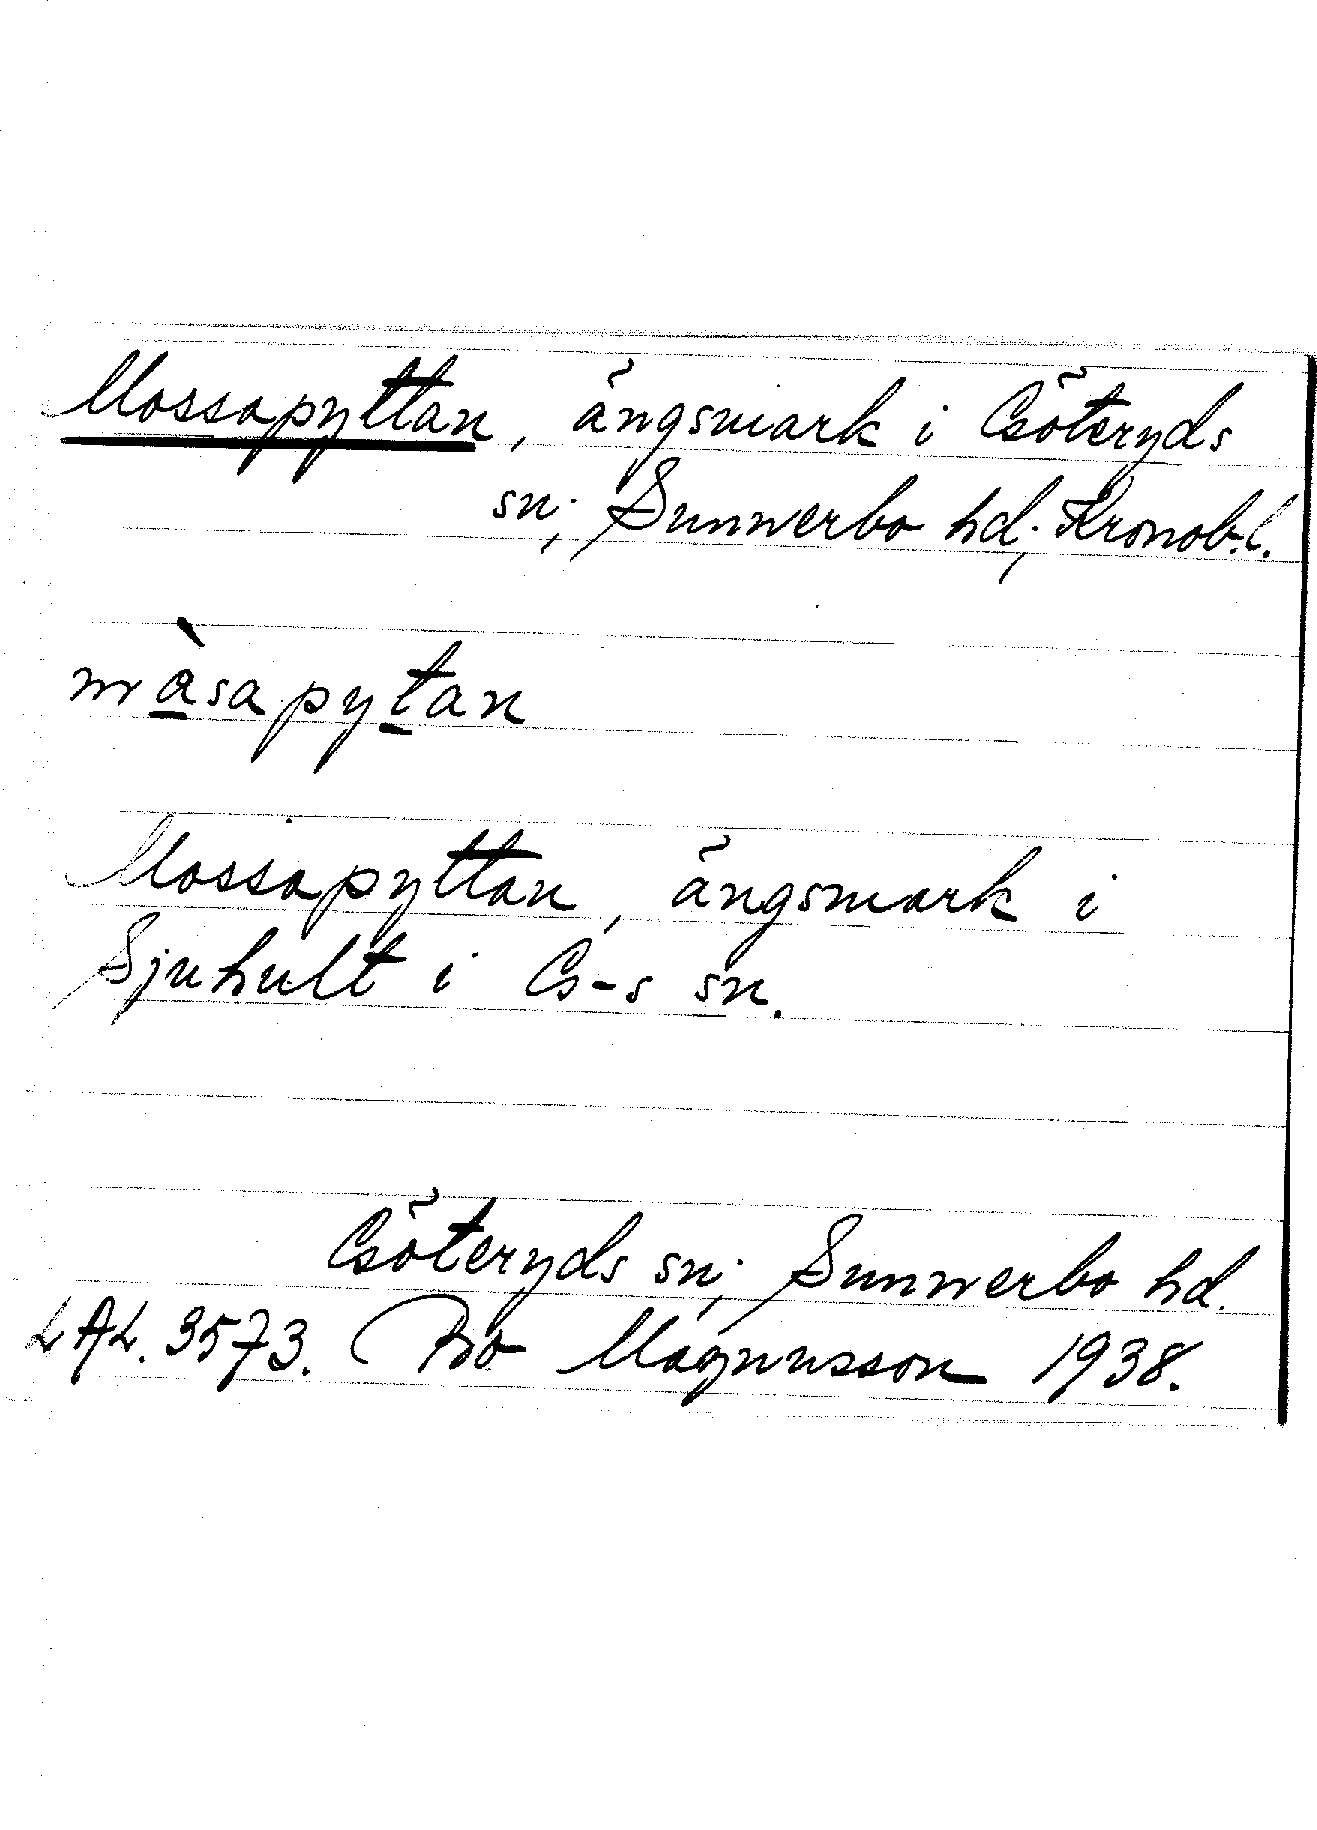 Mossapyttan, ängsmark i Göteryds
sn; Sunnerbo hd; Kronob. l.
màsapytan
Mossapyttan, ängsmark i
Sjuhult i G-s sn.
Göteryds sn; Sunnerbo hd.
LAL. 3573. Bo Magnusson 1938.